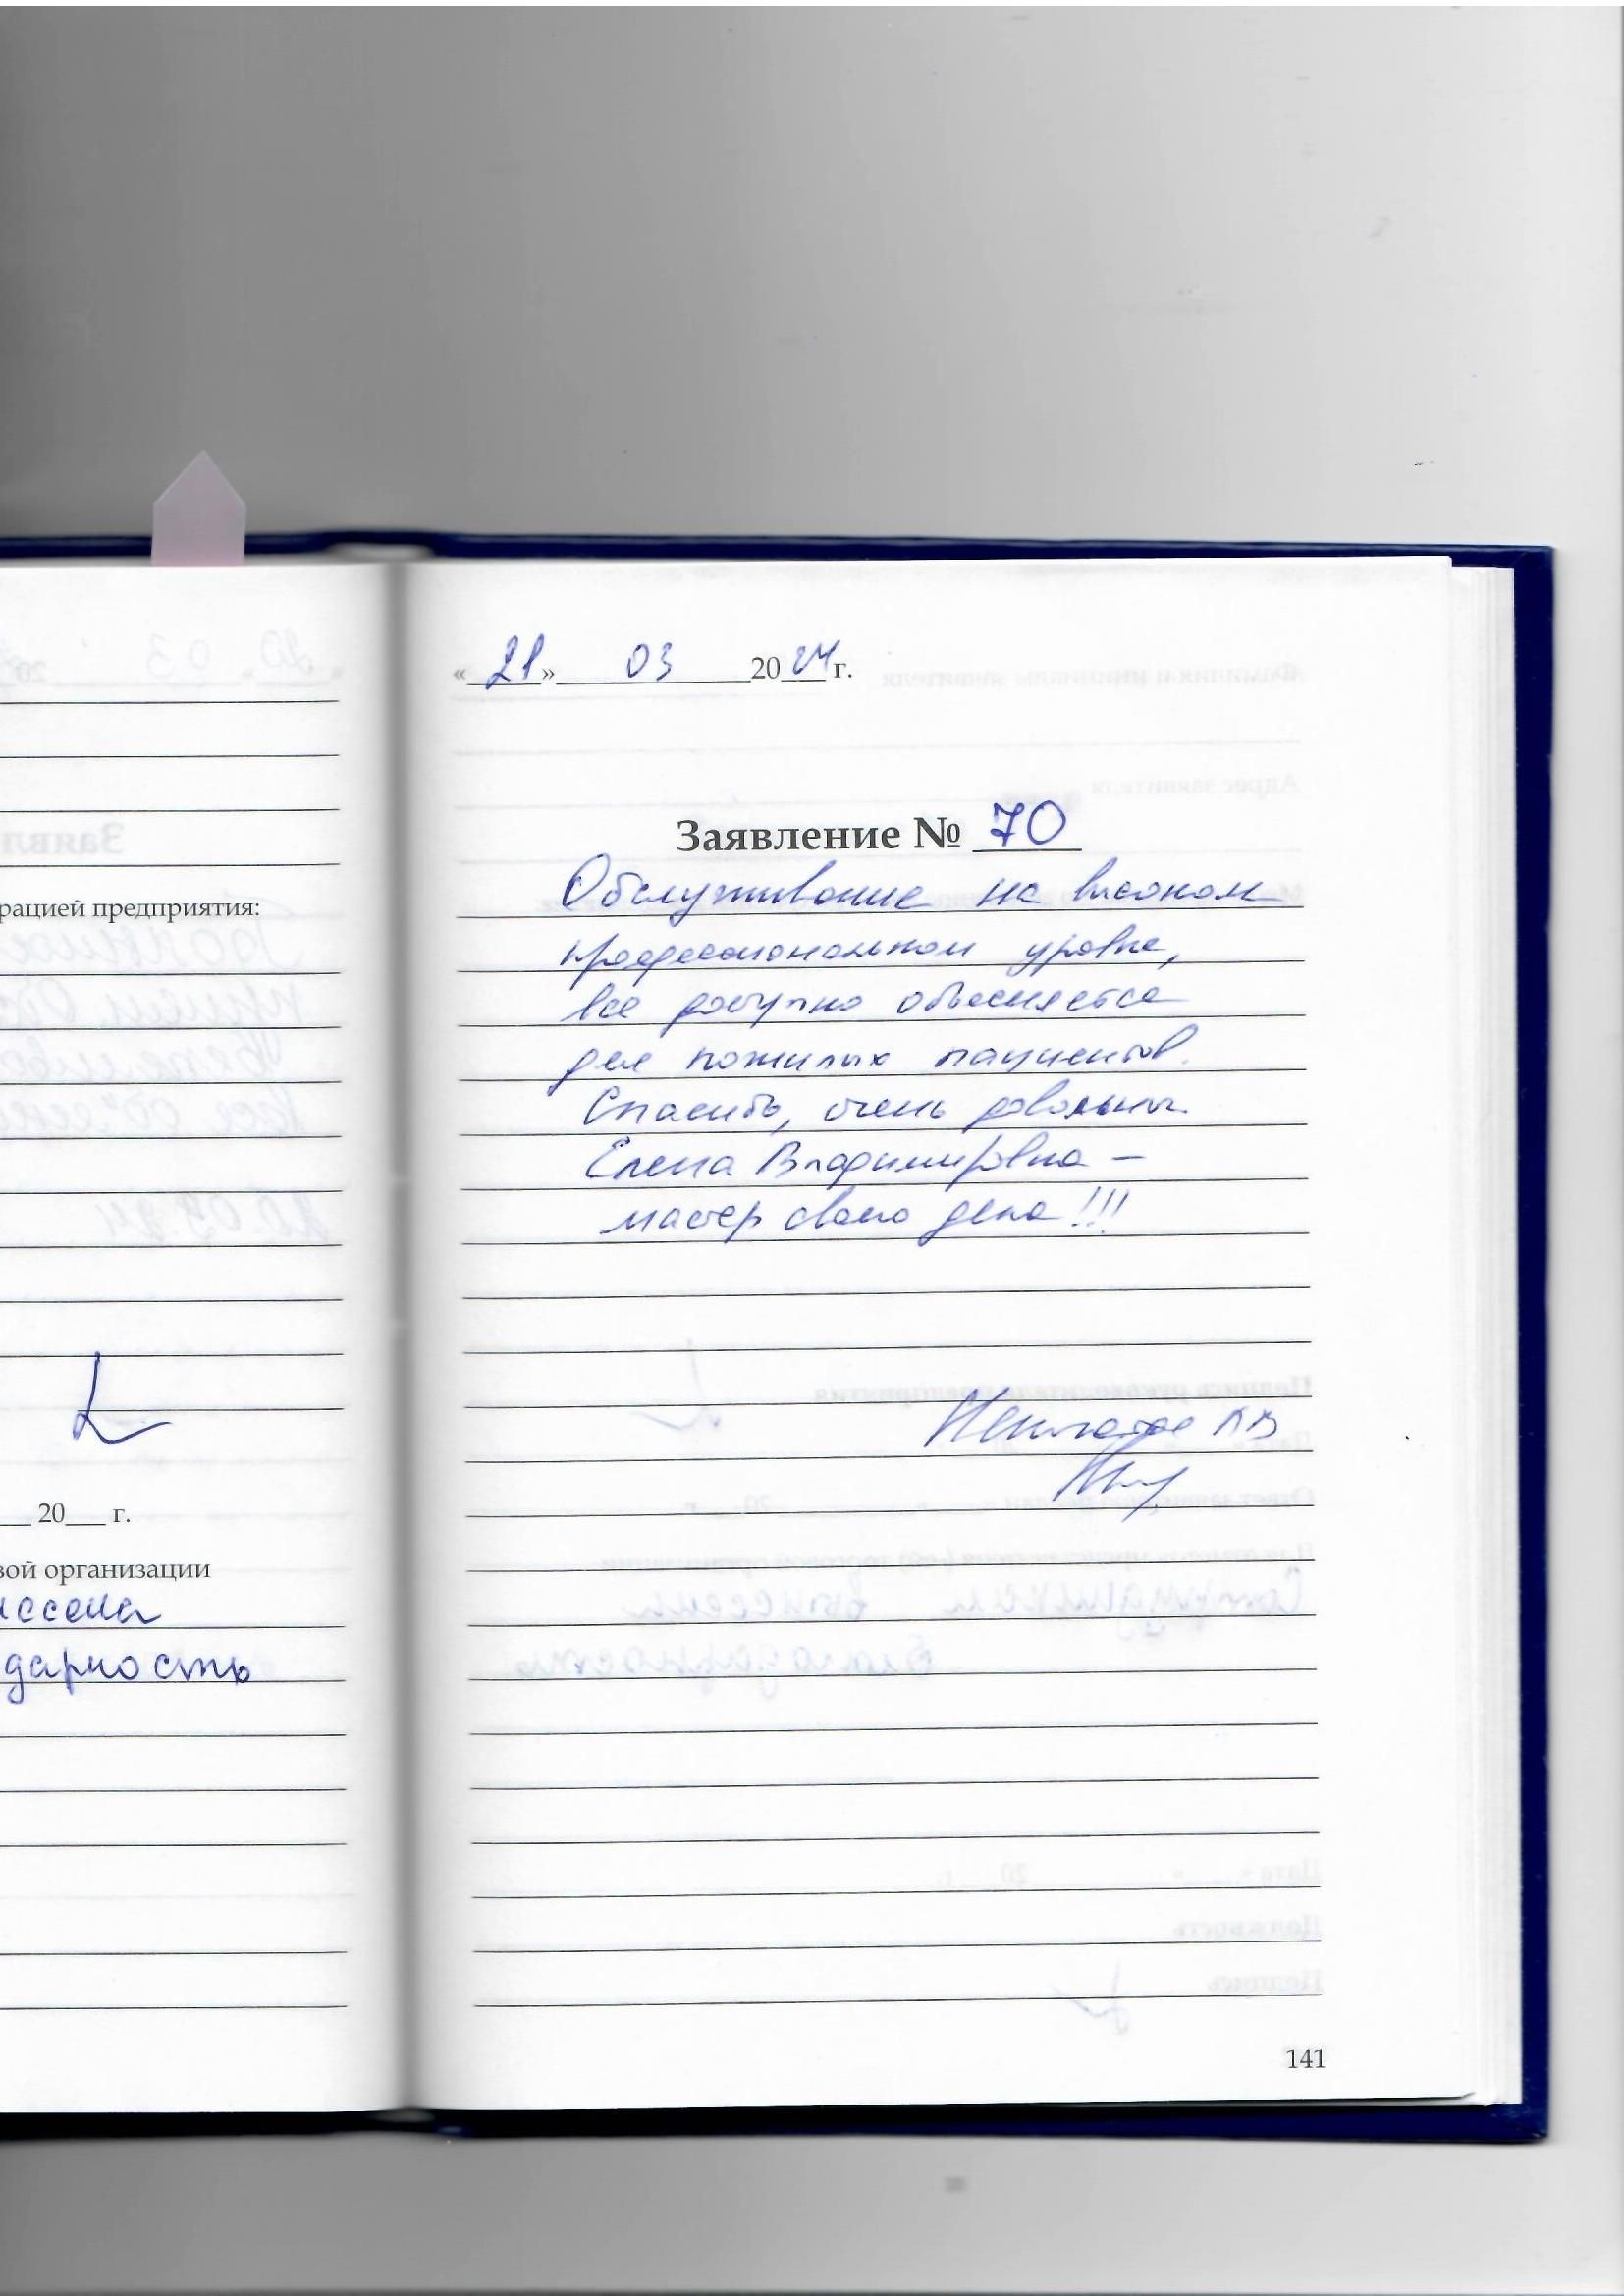 рацией предприятия:
20 г.
вой организации
несена
дарность
«21» 03 2024 г.
Заявление № 70
Обслуживание на высоком
профессиональном уровне,
все доступно объясняется
для пожилых пациентов.
Спасибо, очень довольны.
Елена Владимировна –
мастер своего дела!!!
141